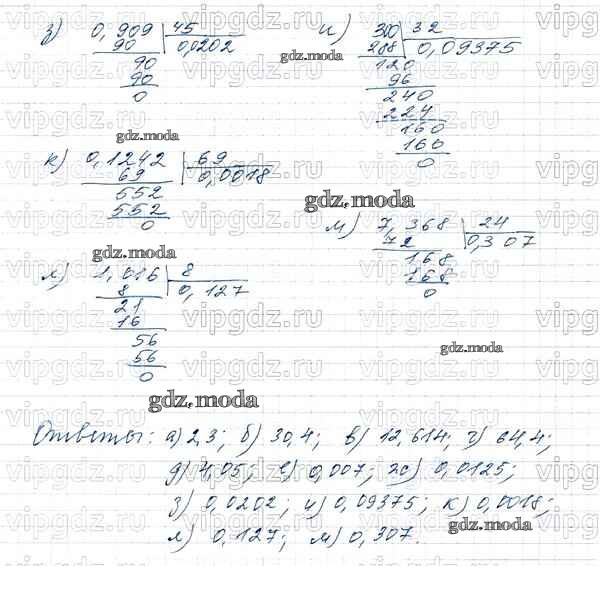 з) 0,909 45 и) 300 32
90 0,0202 288 0,09375
90 120
90 96
0 240
224
160
160
0
к) 0,1242 69
69 0,0018
552
552
0
м) 7,368 24
72 0,307
168
168
0
л) 1,016 8
8 0,127
21
16
56
56
0
gdz.moda
gdz.moda
gdz.moda
gdz.moda
gdz.moda
gdz.moda
Ответы: а) 2,3; б) 30,4; в) 12,614; г) 64,4;
д) 4,05; е) 0,007; ж) 0,0125;
з) 0,0202; и) 0,09375; к) 0,0018;
gdz.moda
л) 0,127; м) 0,307.
vipgdz.ru